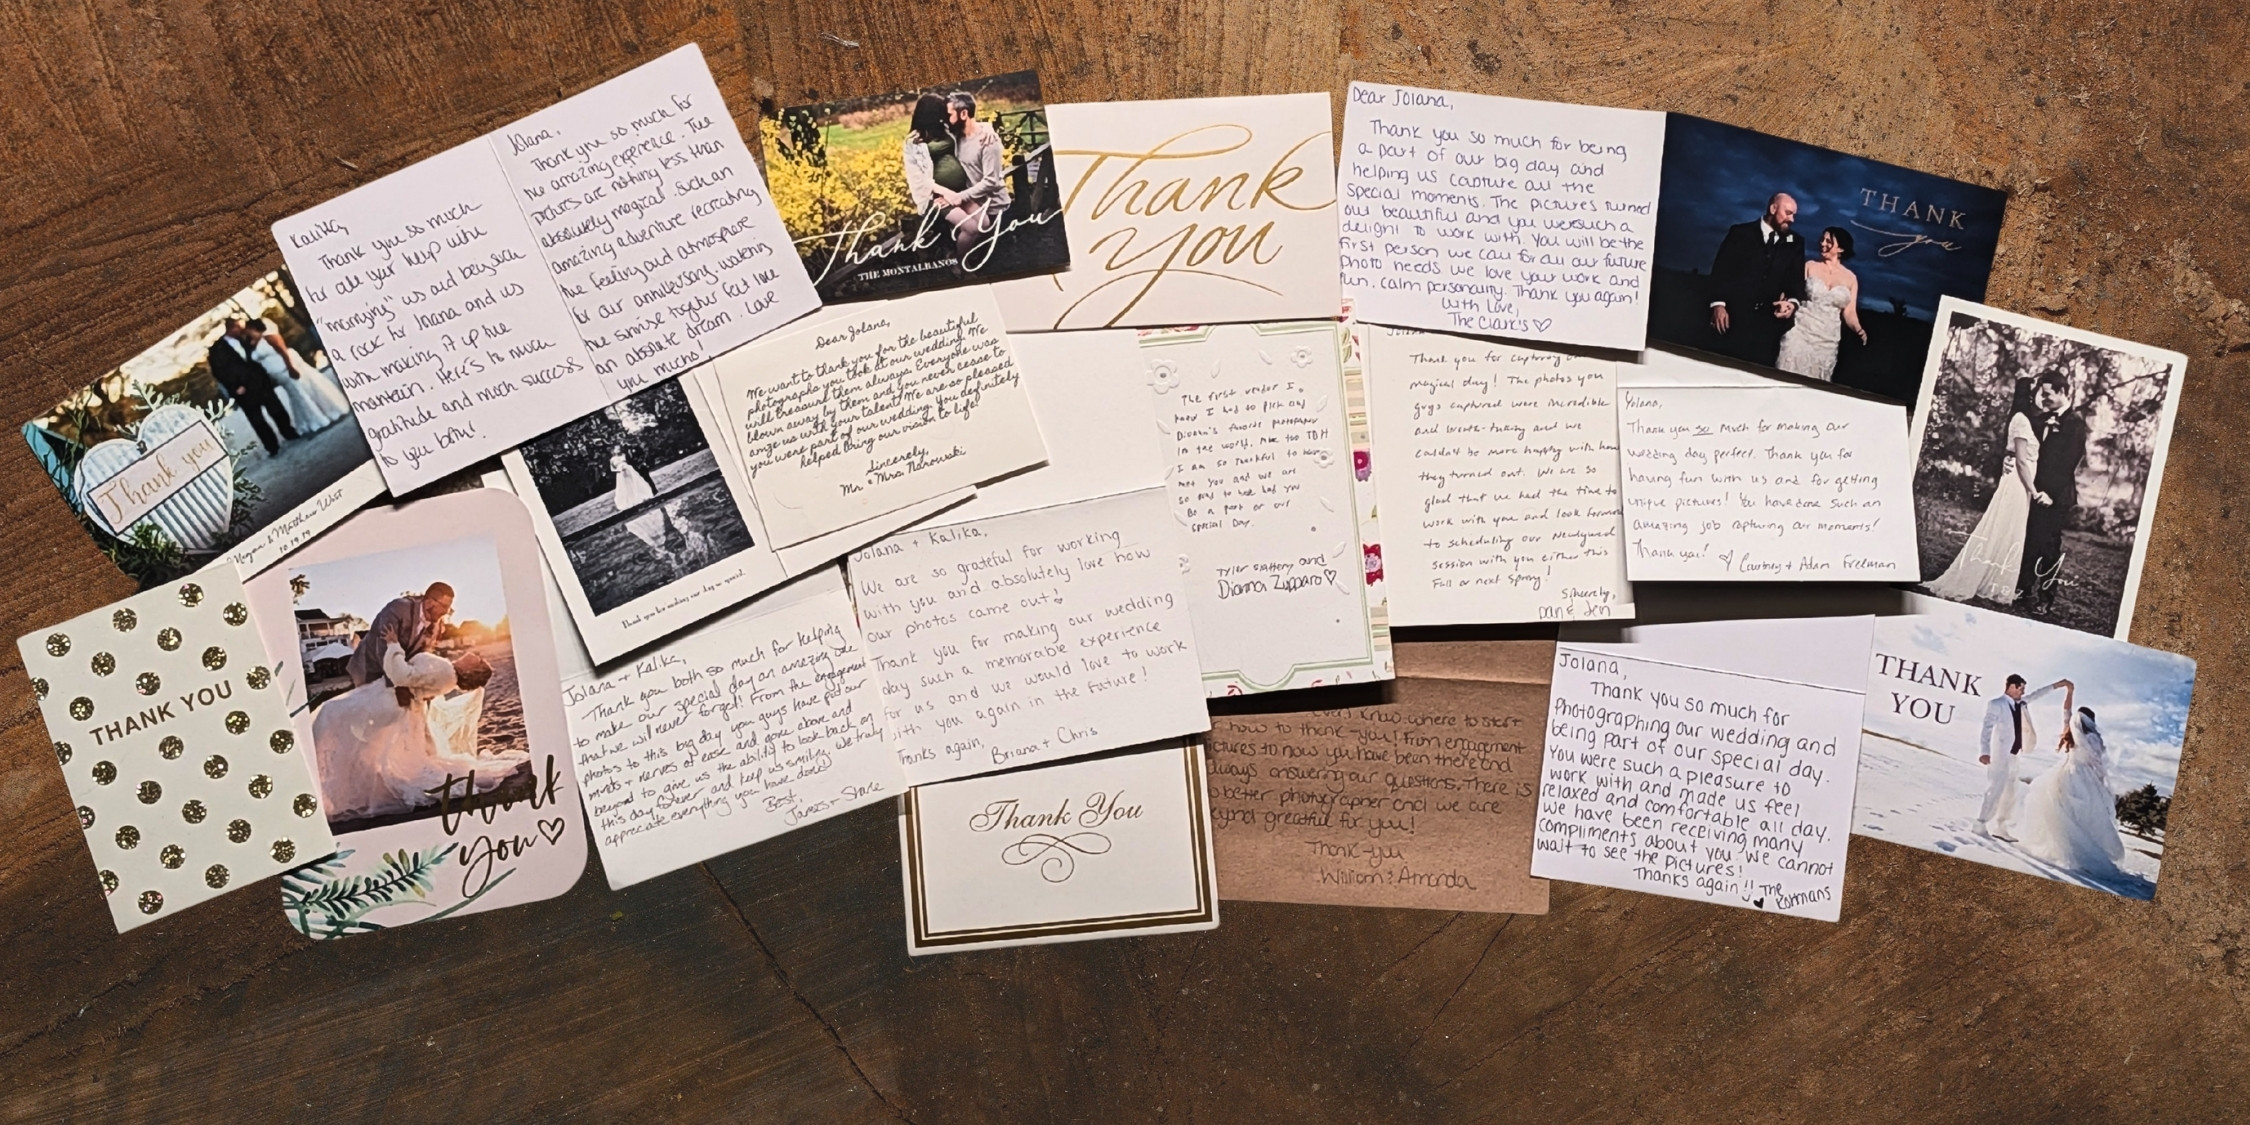 Kalika,
Thank you so much
for all your help with
"marrying" us and being such
a rock for Jolana and us
with making it up the
mountain. Here's to much
gratitude and much success
to you both!
Jolana,
Thank you so much for
the amazing experience. The
pictures are nothing less than
absolutely magical. Such an
amazing adventure recreating
the feeling and atmosphere
for our anniversary, watching
the sunrise together felt like
an absolute dream. Love
you muchs!
Thank You
THE MONTALBANOS
Thank
you
Dear Jolana,
Thank you so much for being
a part of our big day and
helping us capture all the
special moments. The pictures turned
out beautiful and you were such a
delight to work with. You will be the
first person we call for all our future
photo needs we love your work and
fun, calm personality. Thank you again!
With Love,
The Clark's
THANK
you
Thank you
Megan & Matthew West
10.19.19
Dear Jolana,
We want to thank you for the beautiful
photographs you took at our wedding. We
will treasure them always. Everyone was
blown away by them and you never cease to
amaze us with your talent! We are so pleased
you were part of our wedding. You definitely
helped bring our vision to life!
Sincerely,
Mr. & Mrs. Narowski
Thank you for making our day so special.
The first vendor I
knew I had to pick and
Dianna's favorite photographer
in the world. Me too TBH
I am so thankful to have
met you and we are
so glad to have had you
be a part of our
special day.
Tyler Slattery and
Dianna Zupparo
Thank you for capturing our
magical day! The photos you
guys captured were incredible
and breath-taking and we
couldn't be more happy with how
they turned out. We are so
glad that we had the time to
work with you and look forward
to scheduling our newlywed
session with you either this
Fall or next Spring!
Sincerely,
Dan & Jen
Yolana,
Thank you so much for making our
wedding day perfect. Thank you for
having fun with us and for getting
unique pictures! You have done such an
amazing job capturing our moments!
Thank you! Courtney + Adam Freeman
Thank You
THANK YOU
thank
you
Jolana + Kalika,
Thank you both so much for helping
to make our special day an amazing one
that we will never forget! From the engagement
photos to this big day you guys have put our
minds + nerves at ease and gone above and
beyond to give us the ability to look back on
this day forever and keep us smiling, we truly
appreciate everything you have done!
Best,
James + Shane
Jolana + Kalika,
We are so grateful for working
with you and absolutely love how
our photos came out!
Thank you for making our wedding
day such a memorable experience
for us and we would love to work
with you again in the future!
Thanks again,
Briana + Chris
Thank You
even know where to start
how to thank-you! From engagement
pictures to now you have been there and
always answering our questions. There is
no better photographer and we are
beyond greatful for you!
Thank-you
William & Amanda
Jolana,
Thank you so much for
photographing our wedding and
being part of our special day.
You were such a pleasure to
work with and made us feel
relaxed and comfortable all day.
We have been receiving many
compliments about you. We cannot
wait to see the pictures!
Thanks again!! The
Rotmans
THANK
YOU